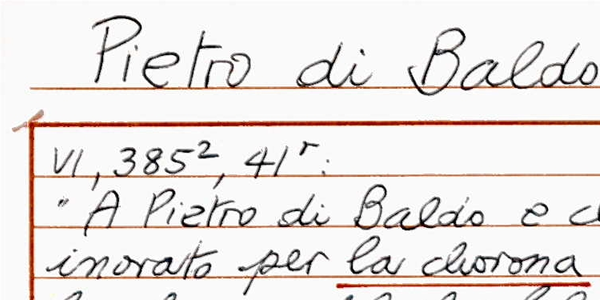 Pietro di Baldo
VI, 385², 41ʳ:
"A Pietro di Baldo e
inorato per la chorona